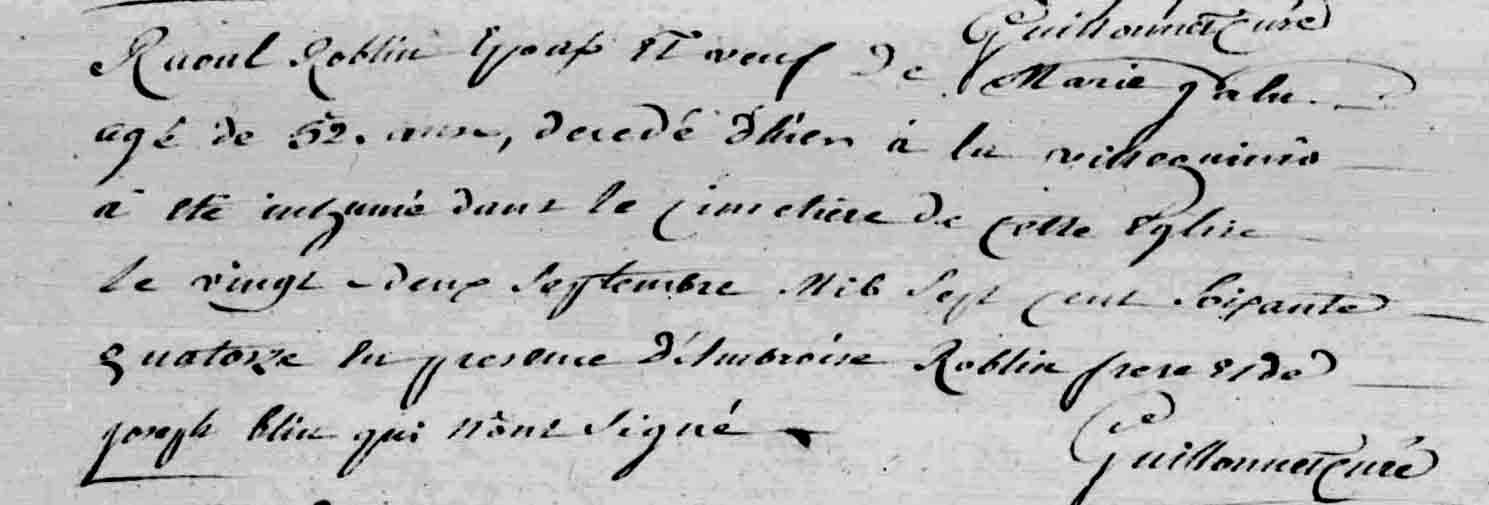 Guillonnet Curé
Raoul Roblin Epoux Et veuf De Marie Jalu.
agé de 52. ans, decedé d'hier à la villeguinio
à eté inhumé dans le cimetiere de cette Eglise
le vingt-deux Septembre Mil Sept cent Soixante
quatorze En presence d'Ambroise Roblin frere Et de
joseph blin qui n'ont Signé
Guillonnet Curé